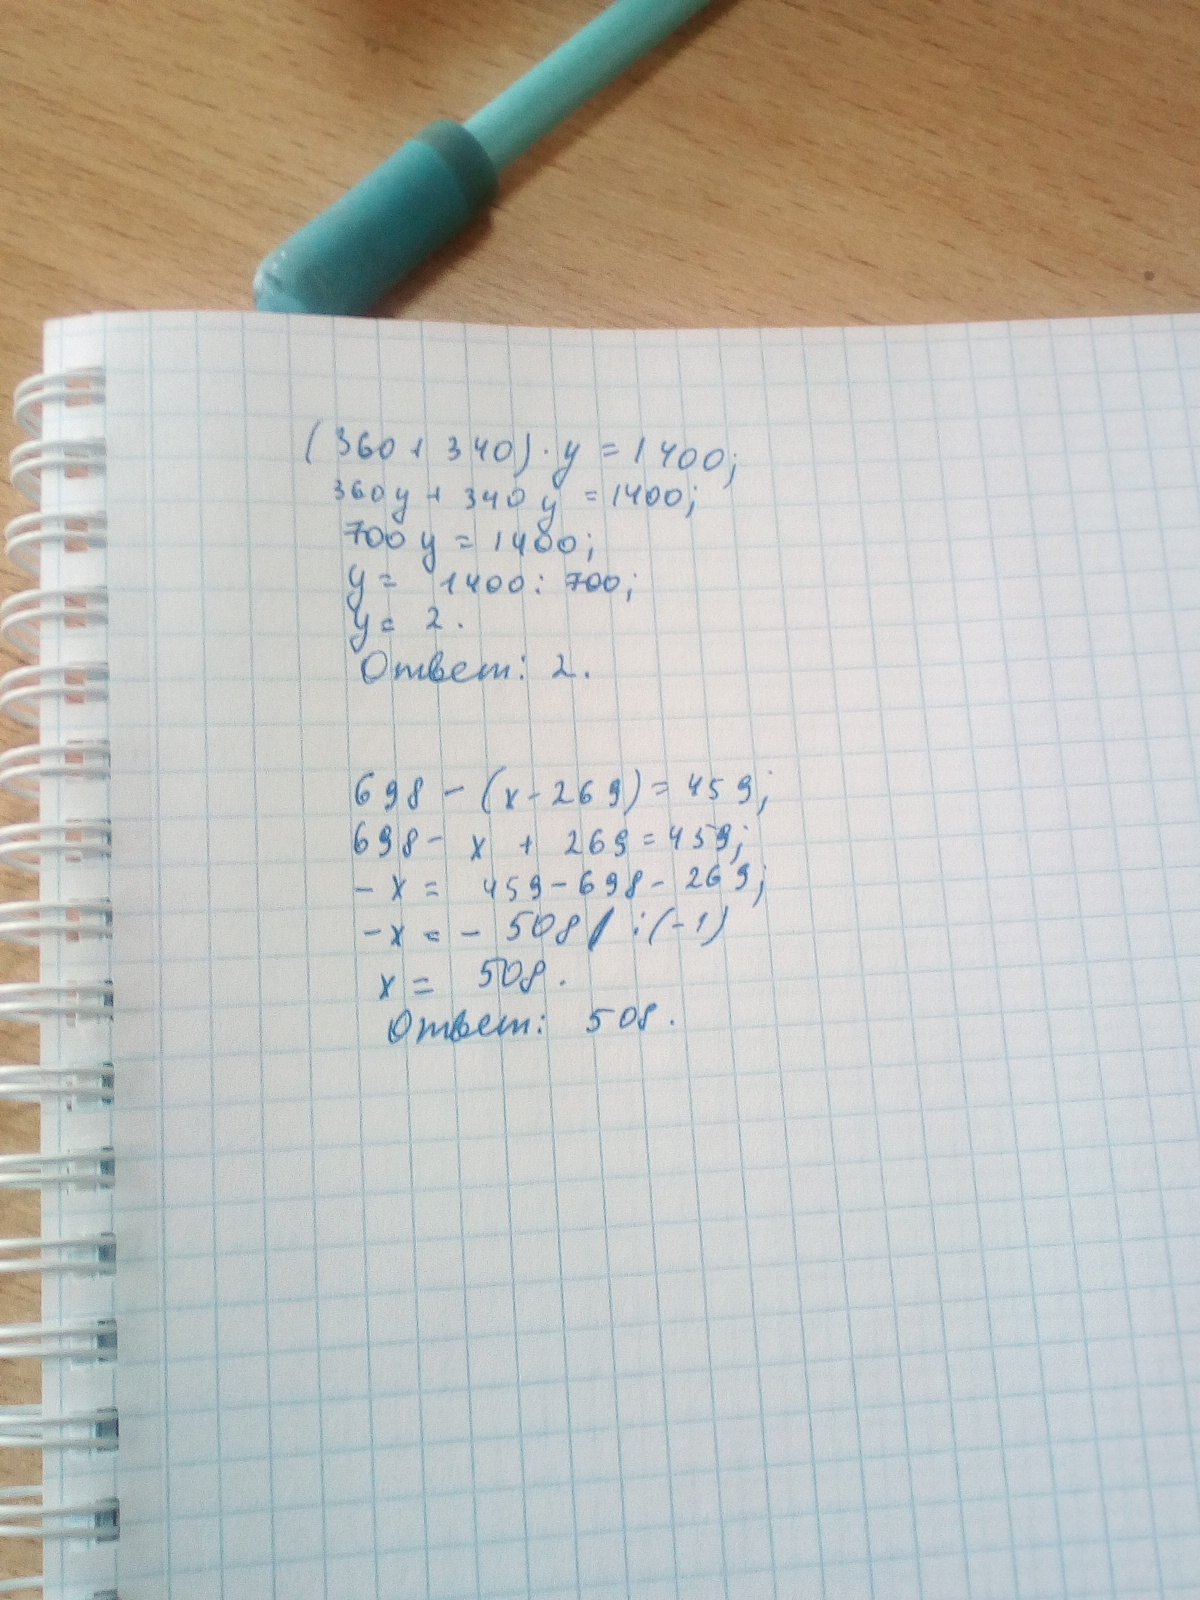 (360 + 340) · y = 1400;
360y + 340y = 1400;
700y = 1400;
y = 1400 : 700;
y = 2.
Ответ: 2.
698 - (x - 269) = 459;
698 - x + 269 = 459;
- x = 459 - 698 - 269;
- x = - 508 / : (-1)
x = 508.
Ответ: 508.